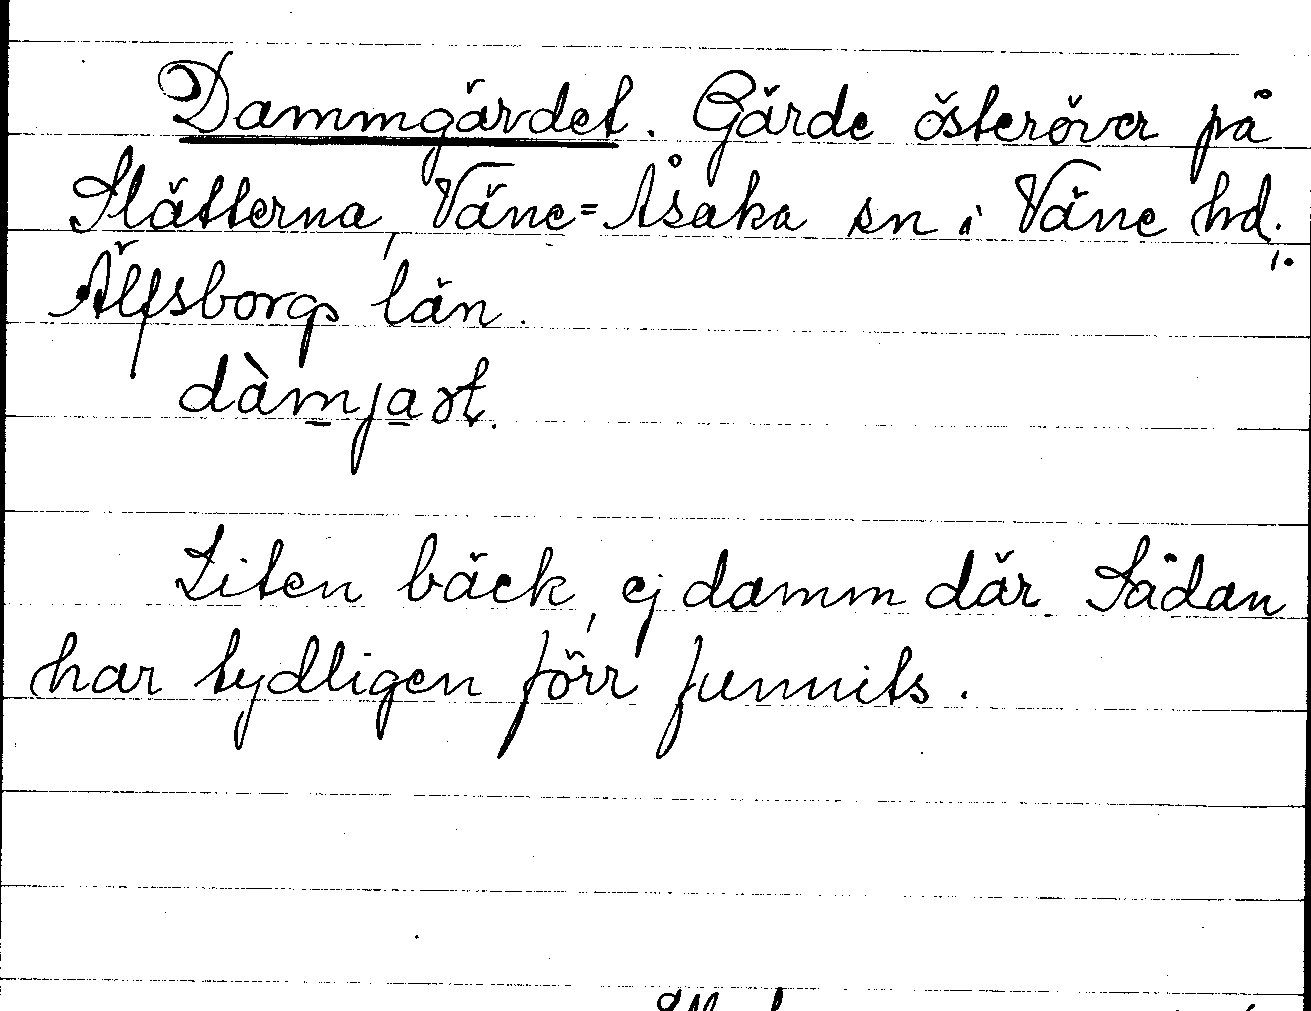 Dammgärdet. Gärde österöver på
Slätterna, Väne=Åsaka sn i Väne hd.
Älfsborgs län.
dàmjart.
Liten bäck, ej damm där. Sådan
har tydligen förr funnits.